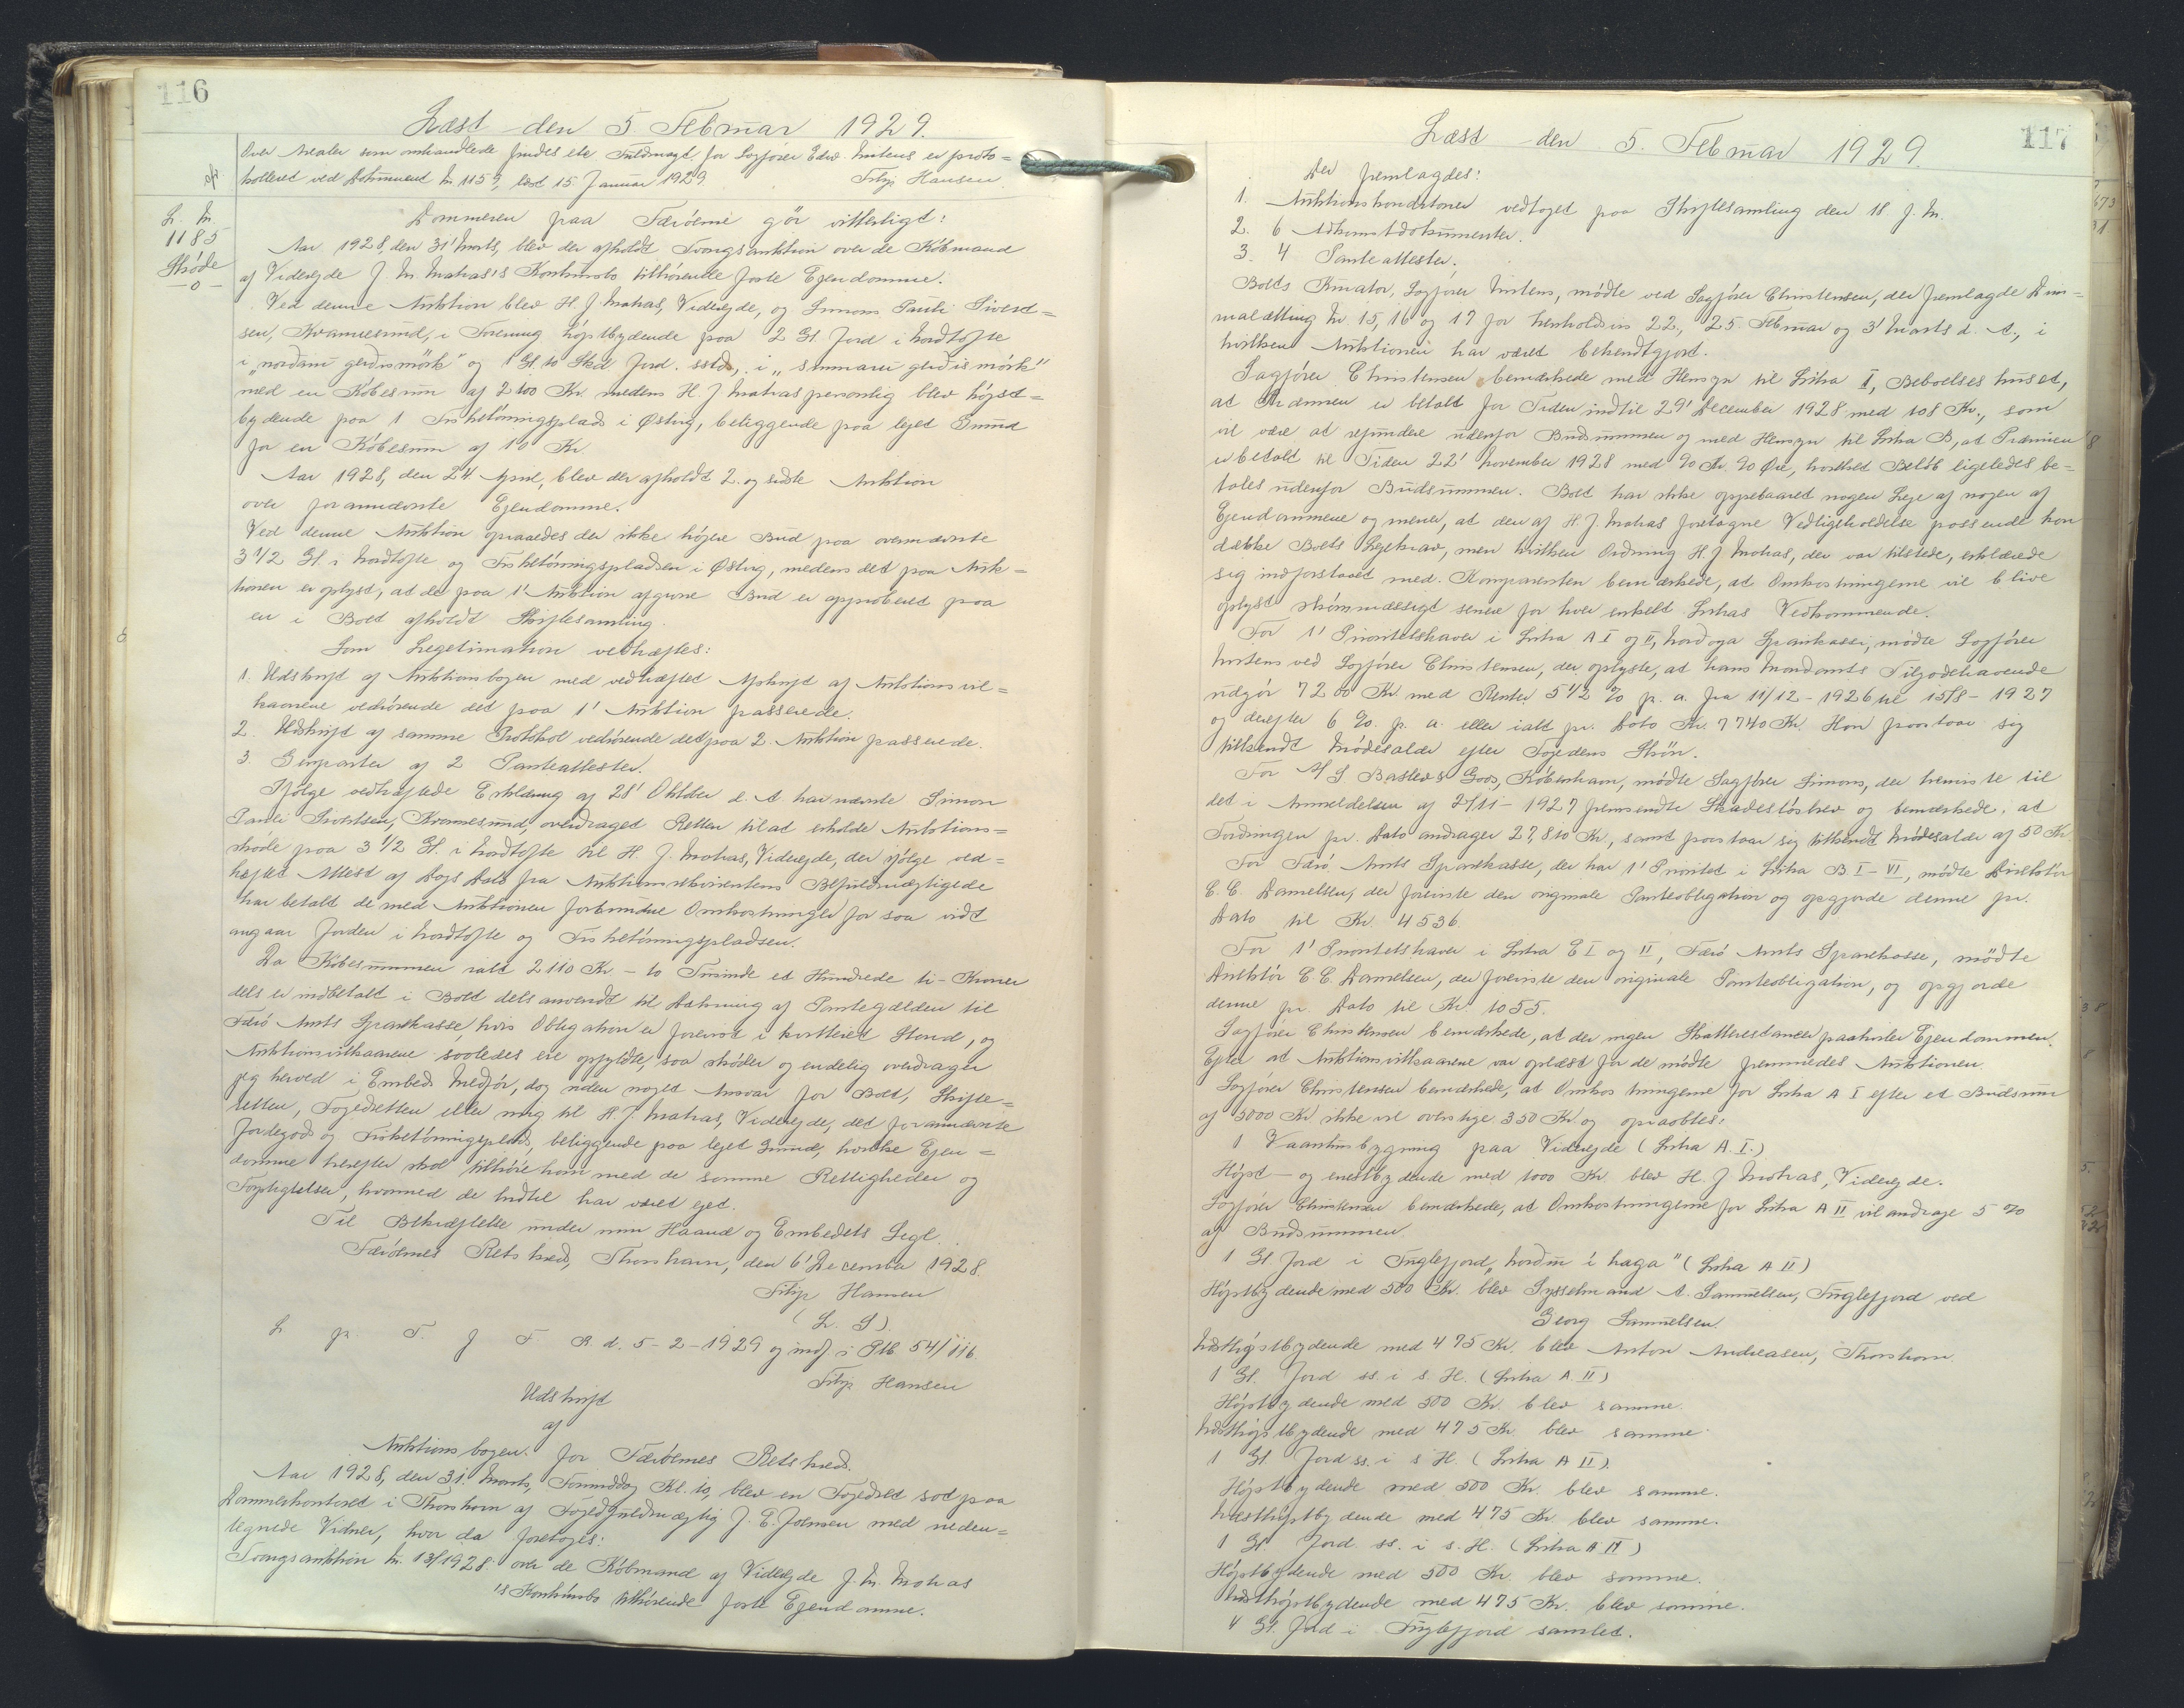 116
Læst den 5. Februar 1929.
Over Arealer som omhandlede findes ete Fuldmagt for Sagfører Edw. Mitens er proto=
kolleret ved Dokument Nr. 1159, læst 15. Januar 1929
Filip Hansen
L. Nr.
1185
Skøde
- 0 -
Dommeren paa Færøerne gör vitterligt:
Aar 1928 den 31' Marts, blev der afholdt Tvangsauktion over de Købmand
af Viderejde J. M. Matras's Konkursbo tilhørende faste Ejendomme.
Ved denne Auktion blev H. J. Matras, Viderejde, og Simon Pauli Sivert=
sen, Kvannesund, i Forening højstbydende paa 2 Gl. Jord i Nordtofte
i "norðaru gerðismørk" og 1 Gl. 10 Skd. Jord. sstds. i "sunnaru gerðismørk"
med en Købesum af 2100 Kr. medens H. J. Matras personlig blev højst=
bydende paa 1 Fisketørringsplads i Østvig, beliggende paa lejet Grund
for en Købesum af 10 Kr.
Aar 1928, den 24. April, blev der afholdt 2. og sidste Auktion
over forannævnte Ejendomme.
Ved denne Auktion opnaaedes der ikke højere Bud paa ovennævnte
3 1/2 Gl. i Nordtofte og Fisketørringspladsen i Østvig, medens det paa Auk=
tionen er oplyst, at de paa 1' Auktion afgivne Bud er approberet paa
en i Boet afholdt Skiftesamling.
Som Legitimation vedhæftes:
1. Udskrift af Auktionsbogen med vedhæftet Afskrift af Auktionsvil=
kaarene vedrørende det paa 1' Auktion passerede.
2. Udskrift af samme Protokol vedrørende det paa 2. Auktion passerede.
3. Genparter af 2 Panteattester.
Ifølge vedhæftede Erklæring af 28' Oktober d. A. har nævnte Simon
Pauli Sivertsen, Kvannesund, overdraget Retten til at erholde Auktions=
skøde paa 3 1/2 Gl. i Nordtofte til H. J. Matras, Viderejde, der ifølge ved=
hæftet Attest af Dags Dato fra Auktionsrekvirentens Befuldmægtigede
har betalt de med Auktionen forbundne Omkostninger for saa vidt
angaar Jorden i Nordtofte og Fisketørringspladsen.
Da Købesummen ialt 2110 Kr - to Tusinde et Hundrede ti - Kroner
dels er indbetalt i Boet dels anvendt til Dækning af Pantegælden til
Færö Amts Sparekasse hvis Obligation er forevist i kvitteret Stand, og
Auktionsvilkaarene saaledes ere opfyldte, saa skøder og endelig overdrager
jeg herved i Embeds Medfør, dog uden noget Ansvar for Boet, Skifte=
retten, Fogedretten eller mig til H. J. Matras, Viderejde, det forannævnte
Jordegods og Fisketørringsplads, beliggende paa lejet Grund, hvilke Ejen=
domme herefter skal tilhøre ham med de samme Rettigheder og
Forpligtelser, hvormed de hidtil har været ejet.
Til Bekræftelse under min Haand og Embedets Segl.
Færøernes Retskreds, Thorshavn, den 6' December 1928.
Filip Hansen
(L. S).
L. p. T. f. F. R. d. 5-2-1929 og indf. i Ptk. 54/116.
Filip Hansen
Udskrift
af
Auktionsbogen for Færøernes Retskreds.
Aar 1928, den 31. Marts, Formiddag Kl. 10, blev en Fogedret sat paa
Dommerkontoret i Thorshavn af Fogedfuldmægtig J. E. Joensen med neden=
tegnede Vidner, hvor da foretoges:
Tvangsauktion Nr. 13/1928: over de Købmand af Viderejde J. M. Matras
's Konkursbo tilhørende faste Ejendomme.
117
Læst den 5. Februar 1929.
Der fremlagdes:
1. Auktionskonditioner vedtaget paa Skiftesamling den 18. f. M.
2. 6 Adkomstdokumenter.
3. 4 Panteattester.
Boets Kurator, Sagfører Mitens, mødte ved Sagfører Christensen, der fremlagde Dim=
malætting Nr. 15, 16 og 17 for henholdsvis 22., 25. Februar og 3' Marts d. A., i
hvilken Auktionen har været bekendtgjort.
Sagfører Christensen bemærkede med Hensyn til Litra I, Beboelseshuset,
at Præmien er betalt for Tiden indtil 29' December 1928 med 108 Kr., som
vil være at refundere udenfor Budsummen og med Hensyn til Litra B, at Præmien
er betalt til Tiden 22' November 1928 med 90 Kr. 90 Øre, hvilket Beløb ligeledes be=
tales udenfor Budsummen. Boet har ikke oppebaaret nogen Leje af nogen af
Ejendommene og mener, at den af H. J. Matras foretagne Vedligeholdelse passende kan
dække Boets Lejekrav, men hvilken Ordning H. J. Matras, der var tilstede, erklærede
sig indforstaaet med. Komparenten bemærkede, at Omkostningerne vil blive
oplyst skønmæssigt senere for hver enkelt Litras Vedkommende.
For 1' Prioritetshaver i Litra A I og II, Nordoya Sparikassi, mødte Sagfører
Mitens ved Sagfører Christensen, der oplyste, at hans Mandants Tilgodehavende
udgør 7200 Kr. med Renter 5 1/2 % p. a. fra 11/12-1926 til 15/8-1927
og derefter 6 %. p. a. eller ialt pr. Dato Kr. 7740 Kr. Han paastaar sig
tilkendt Mødesalær efter Fogedens Skön.
For A/S. Bastes Goos, København, mødte Sagfører Simons, der henviste til
det i Anmeldelsen af 2/11-1927 fremsendte Skadesløsbrev og bemærkede, at
Fordringen pr. Dato andrager 27,810 Kr, samt paastaar sig tilkendt Mødesalær af 50 Kr.
For Færö Amts Sparekasse, der har 1' Prioritet i Litra B. I-VI, mødte Direktör
C. C. Danielsen, der foreviste den originale Panteobligation og opgjorde denne pr.
Dato til Kr. 4536.
For 1' Prioritetshaver i Litra E I og II, Færö Amts Sparekasse, mødte
Direktör C. C. Danielsen, der foreviste den originale Panteobligation, og opgjorde
denne pr. Dato til Kr. 1055.
Sagfører Christensen bemærkede, at der ingen Skatterestancer paahviler Ejendommen.
Efter at Auktionsvilkaarene var oplæst for de mødte fremmedes Auktionen.
Sagfører Christensen bemærkede, at Omkostningerne for Litra A I efter et Budsum
af 5000 Kr ikke vil overstige 350 Kr og opraabtes:
1 Vaaningsbygning paa Viderejde (Litra A. I.)
Højst- og enestbydende med 1000 Kr. blev H. J. Matras, Viderejde.
Sagfører Christensen bemærkede, at Omkostningerne for Litra A II vil andrage 5 %
af Budsummen
1 Gl Jord i Fuglefjord "norður í haga" (Litra A II)
Højstbydende med 500 Kr. blev Sysselmand A. Samuelsen, Fuglefjord ved
Georg Samuelsen.
Næsthøjstbydende med 475 Kr. blev Anton Andreasen, Thorshavn.
1 Gl. Jord ss. i s. H. (Litra A. II)
Højstbydende med 500 Kr. blev samme.
Næsthøjstbydende med 475 Kr. blev samme.
1 Gl Jord ss. i s H. (Litra A II).
Højstbydende med 500 Kr. blev samme.
Næsthøjstbydende med 475 Kr. blev samme.
1 Gl. Jord. ss. i s. H. (Litra A II)
Højstbydende med 500 Kr. blev samme.
Næsthøjstbydende med 475 Kr. blev samme.
4 Gl. Jord i Fuglefjord samlet.